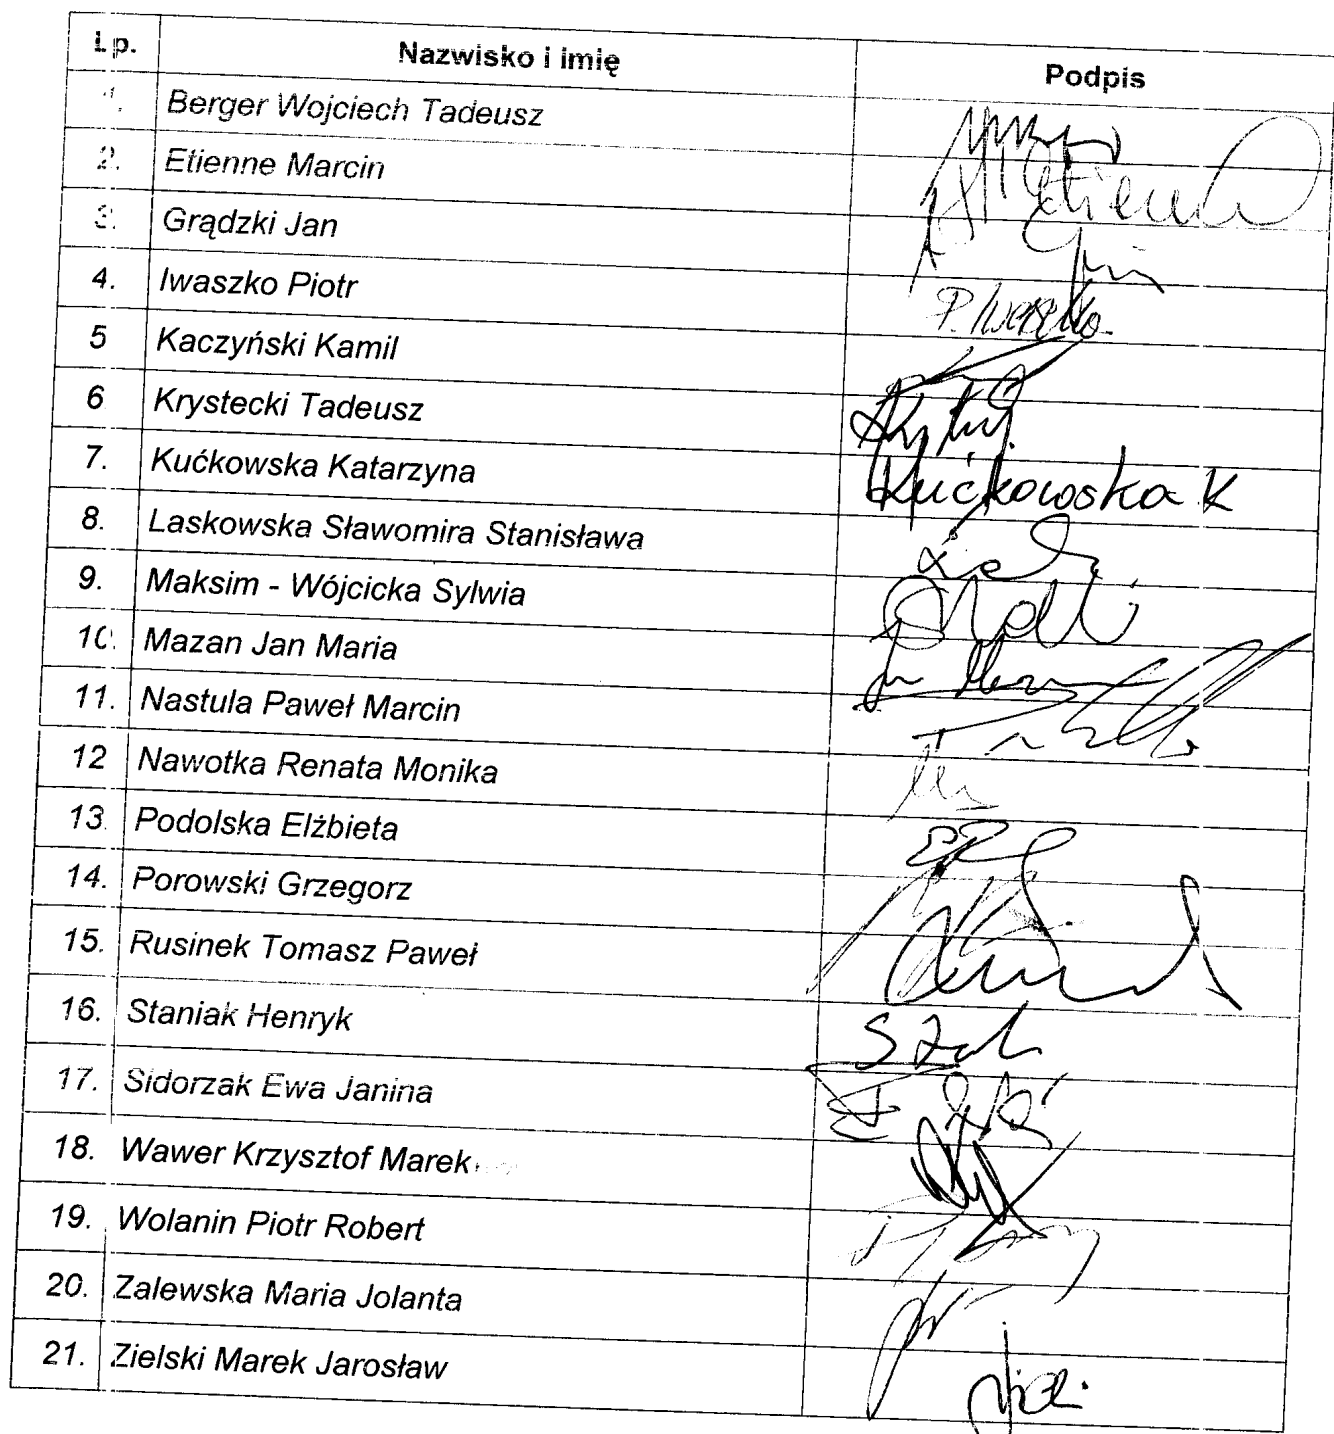 Lp. Nazwisko i imię Podpis
1. Berger Wojciech Tadeusz
2. Etienne Marcin Etienne
3. Grądzki Jan
4. Iwaszko Piotr P. Iwaszko
5 Kaczyński Kamil
6 Krystecki Tadeusz
7. Kućkowska Katarzyna Kućkowska K
8. Laskowska Sławomira Stanisława
9. Maksim - Wójcicka Sylwia
10. Mazan Jan Maria
11. Nastula Paweł Marcin
12 Nawotka Renata Monika
13. Podolska Elżbieta
14. Porowski Grzegorz
15. Rusinek Tomasz Paweł
16. Staniak Henryk
17. Sidorzak Ewa Janina
18. Wawer Krzysztof Marek
19. Wolanin Piotr Robert
20. Zalewska Maria Jolanta
21. Zielski Marek Jarosław